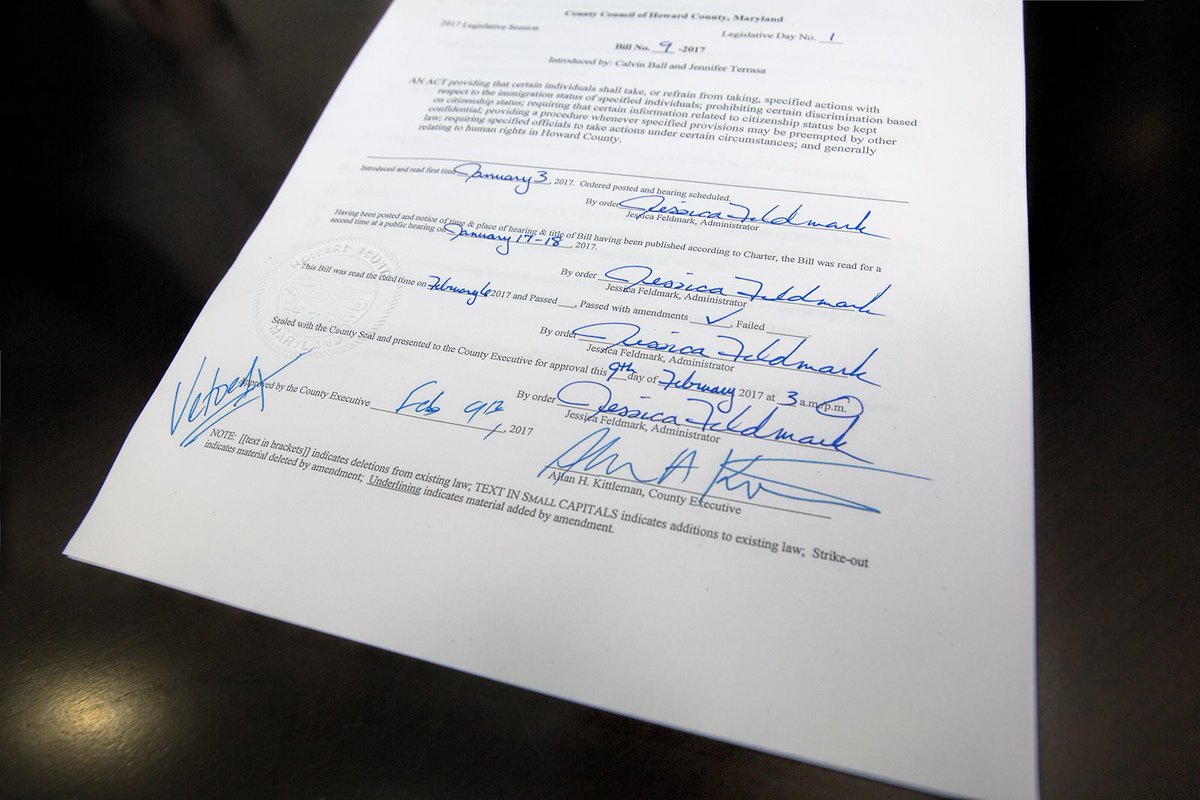 County Council of Howard County, Maryland
2017 Legislative Session
Legislative Day No. 1
Bill No. 9 -2017
Introduced by: Calvin Ball and Jennifer Terrasa
AN ACT providing that certain individuals shall take, or refrain from taking, specified actions with
respect to the immigration status of specified individuals; prohibiting certain discrimination based
on citizenship status; requiring that certain information related to citizenship status be kept
confidential; providing a procedure whenever specified provisions may be preempted by other
law; requiring specified officials to take actions under certain circumstances; and generally
relating to human rights in Howard County.
Introduced and read first time January 3, 2017. Ordered posted and hearing scheduled.
By order Jessica Feldmark
Jessica Feldmark, Administrator
Having been posted and notice of time & place of hearing & title of Bill having been published according to Charter, the Bill was read for a
second time at a public hearing on January 17-18, 2017.
By order Jessica Feldmark
Jessica Feldmark, Administrator
This Bill was read the third time on February 6 2017 and Passed ___, Passed with amendments ✓, Failed ___
By order Jessica Feldmark
Jessica Feldmark, Administrator
Sealed with the County Seal and presented to the County Executive for approval this 9th day of February 2017 at 3 a.m/p.m.
By order Jessica Feldmark
Jessica Feldmark, Administrator
Vetoed
Approved by the County Executive Feb 9th, 2017
Allan H. Kittleman, County Executive
NOTE: [[text in brackets]] indicates deletions from existing law; TEXT IN SMALL CAPITALS indicates additions to existing law; Strike-out
indicates material deleted by amendment; Underlining indicates material added by amendment.
HOWARD COUNTY
MARYLAND